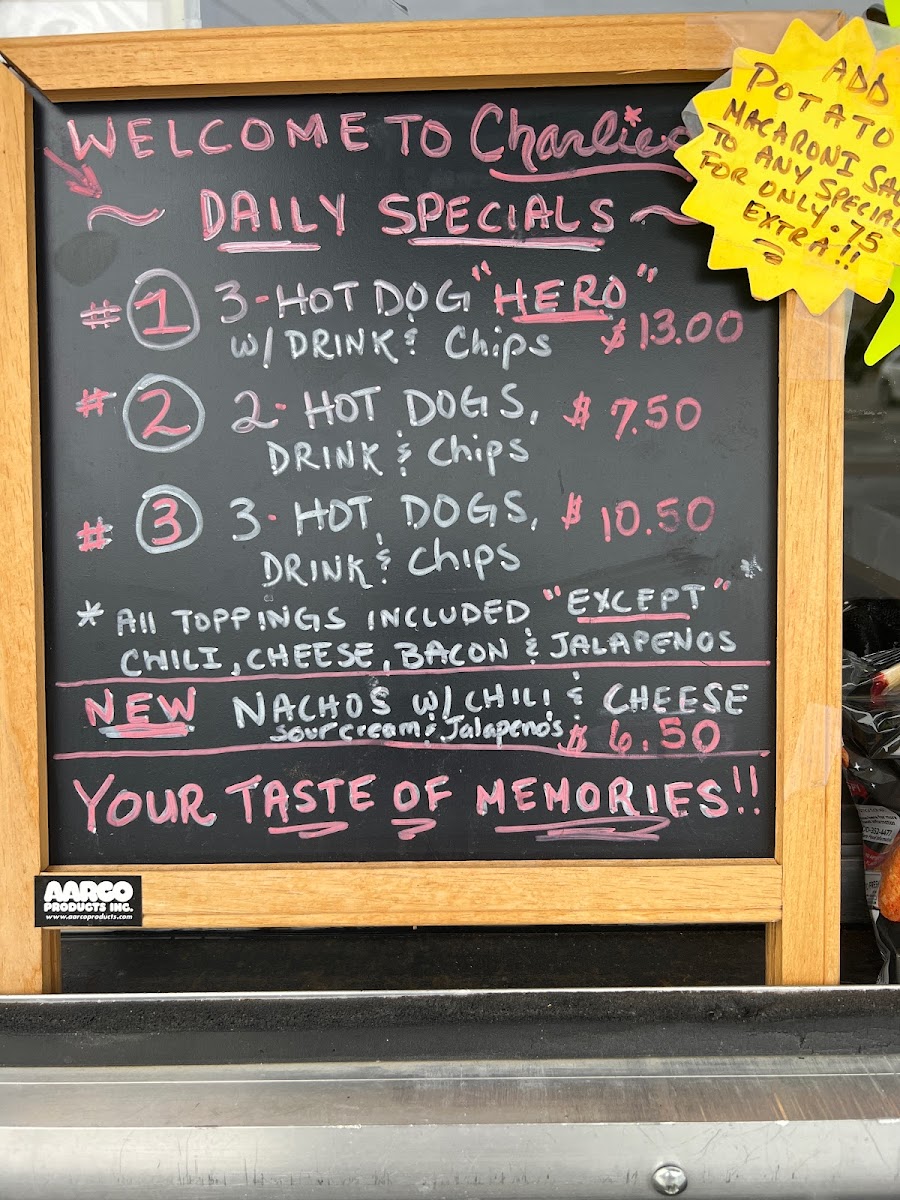 WELCOME TO Charlie's
~ DAILY SPECIALS ~
# 1 3-HOT DOG "HERO"
W/ DRINK & Chips $13.00
# 2 2-HOT DOGS, $7.50
DRINK & Chips
# 3 3-HOT DOGS, $10.50
DRINK & Chips
* All TOPPINGS INCLUDED "EXCEPT" *
CHILI, CHEESE, BACON & JALAPENOS
NEW NACHOS W/ CHILI & CHEESE
Sour cream & Jalapeno's $6.50
YOUR TASTE OF MEMORIES!!
ADD
POTATO
MACARONI
TO ANY SPECIAL
FOR ONLY .75
EXTRA!!
AARCO
PRODUCTS INC.
www.aarcoproducts.com